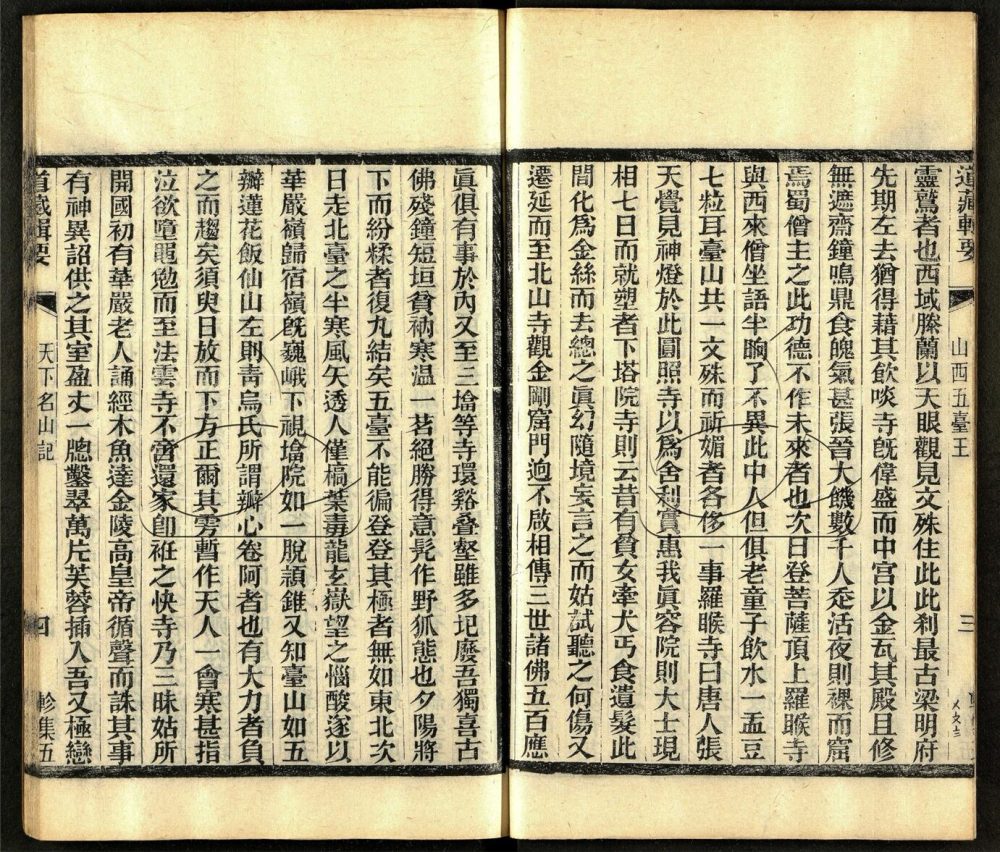 道藏輯要
山西五臺王
三
靈鷲者也西域滕蘭以大眼觀見文殊住此此刹最古梁明府
先期左去猶得藉其飲啖寺旣偉盛而中宫以金瓦其殿且修
無遮齋鐘鳴鼎食餽氣甚張晉大饑數千人坐活夜則裸而窟
焉蜀僧主之此功德不作未來者也次日登菩薩頂上羅睺寺
與西來僧坐語半晌了不異此中人但俱老童子飲水一盂豆
七粒耳臺山共一文殊而祈媚者各侈一事羅睺寺曰唐人張
天覺見神燈於此圓照寺以爲舍利實惠我眞容院則大士現
相七日而就塑者下塔院寺則云昔有貧女牽犬丐食遺髮此
間化爲金絲而去總之眞幻隨境妄言之而姑試聽之何傷又
遷延而至北山寺觀金剛窟門逈不啟相傳三世諸佛五百應
眞俱有事於內又至三塔等寺環谿疊壑雖多圮廢吾獨喜古
佛殘鐘短垣貧衲寒温一茗絕勝得意髡作野狐態也夕陽將
下而紛糅者復九結矣五臺不能徧登登其極者無如東北次
日走北臺之半寒風矢透人僅槁葉毒龍玄嶽望之惱酸遂以
華嚴嶺歸宿嶺旣巍峨下視塔院如一脫潁錐又知臺山如五
瓣蓮花飯仙山左則靑烏氏所謂瓣心卷阿者也有大力者負
之而趨矣須臾日放而下方正爾其雱暫作天人一會寒甚指
泣欲墮黽勉而至法雲寺不啻還家卽袵之快寺乃三昧姑所
開國初有華嚴老人誦經木魚達金陵高皇帝循聲而誅其事
有神異詔供之其室盈丈一牕鑿翠萬片芙蓉插入吾又極戀
道藏輯要
天下名山記
四
軫集五